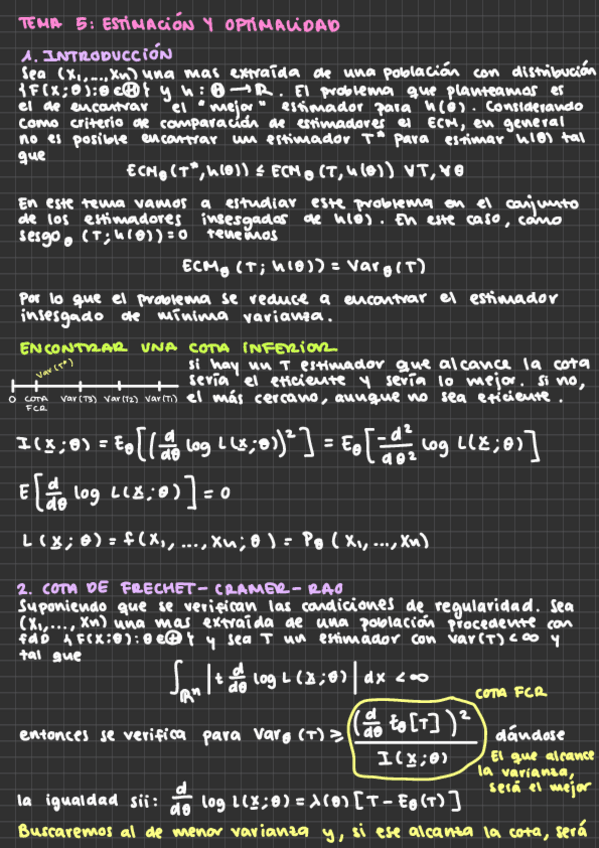 TEMA 5: ESTIMACIÓN Y OPTIMALIDAD
1. INTRODUCCIÓN
Sea (X₁,...,Xn) una mas extraída de una población con distribución
{F(X;θ):θ∈Θ} y h:Θ→ℝ. El problema que planteamos es
el de encontrar el "mejor" estimador para h(θ). Considerando
como criterio de comparación de estimadores el ECM, en general
no es posible encontrar un estimador T* para estimar h(θ) tal
que
ECMθ(T*,h(θ)) ≤ ECMθ(T,h(θ)) ∀T,∀θ
En este tema vamos a estudiar este problema en el conjunto
de los estimadores insesgados de h(θ). En este caso, como
sesgoθ(T;h(θ))=0 tenemos
ECMθ(T;h(θ)) = Varθ(T)
Por lo que el problema se reduce a encontrar el estimador
insesgado de mínima varianza.
ENCONTRAR UNA COTA INFERIOR
Var(T*)
0 COTA FCR Var(T3) Var(T2) Var(T1)
si hay un T estimador que alcance la cota
sería el eficiente y sería lo mejor. si no,
el más cercano, aunque no sea eficiente.
I(x;θ) = Eθ[(d/dθ log L(x;θ))²] = Eθ[-d²/dθ² log L(x;θ)]
E[d/dθ log L(x;θ)] = 0
L(x;θ) = f(x₁,...,xn;θ) = Pθ(x₁,...,xn)
2. COTA DE FRECHET-CRAMER-RAO
Suponiendo que se verifican las condiciones de regularidad. Sea
(X₁,...,Xn) una mas extraída de una población procedente con
fdD {F(X;θ):θ∈Θ} y sea T un estimador con var(T)<∞ y
tal que
∫ℝⁿ |t d/dθ log L(x;θ)| dx < ∞
COTA FCR
entonces se verifica para Varθ(T) ≥ (d/dθ Eθ[T])² / I(x;θ) dándose
El que alcance
la varianza,
será el mejor
la igualdad sii: d/dθ log L(x;θ) = λ(θ)[T-Eθ(T)]
Buscaremos al de menor varianza y, si ese alcanza la cota, será